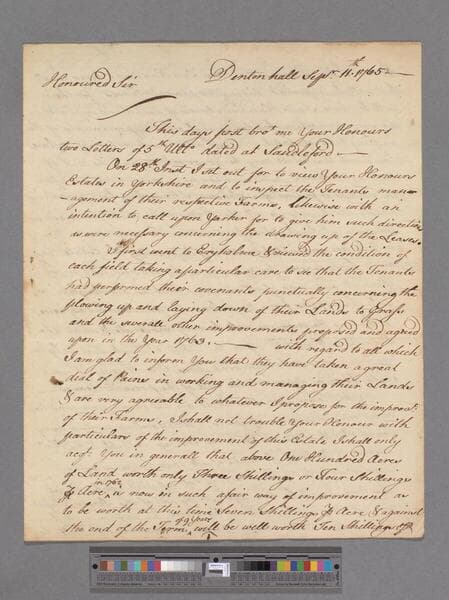 Denton hall Sepr. 11th. 1765
Honoured Sir
This days post bro't me Your Honours
two Letters of 5th Ulto. dated at Sandleford
On 28th Inst I set out for to view Your Honours
Estates in Yorkshire and to inspect the Tenants man-
-agement of their respective Farms, Likewise with an
intention to call upon Yorker for to give him such directions
as were necessary concerning the drawing up of the Leases.
I first went to Eryholme & viewed the condition of
each field taking a particular care to see that the Tenants
had performed their covenants punctually concerning the
plowing up and laying down of their Lands to Grass
and the several other improvements propos'd and agreed
upon in the Year 1763. with regard to all which
I am glad to inform You that they have taken a great
deal of Pains in working and managing their Lands
& are very agreeable to whatever I propose for the improvt.
of their Farms, I shall not trouble Your Honour with
particulars of the improvement of this Estate I shall only
acqt. You in generall that above One Hundred Acres
of Land worth only Three Shillings or Four Shillings
in 1762
Acre is now in such a fair way of improvement as
to be worth at this time Seven Shillings Acre & against
of 9 Years
the end of the Term will be well worth Ten Shillings